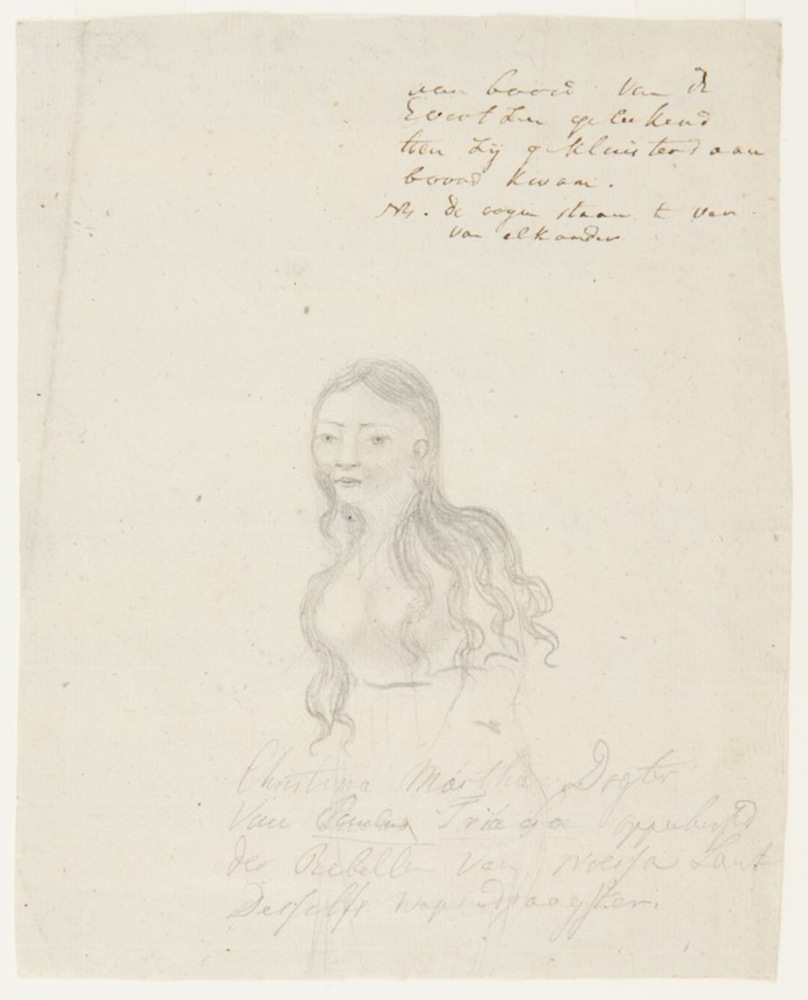 aan boord van de
Evertzen getekend
toen Zij gekluisterd aan
boord kwam.
NB. de oogen staan te ver
van elkander
Christina Martha Dogter
Van Paulus Triago opperhoofd
der Rebellen van Noessa Laut
Deszelfs wapendraagster.